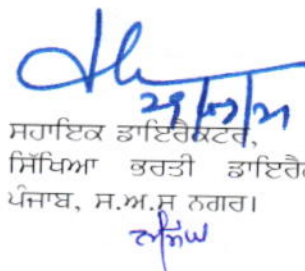 29/07/21
ਸਹਾਇਕ ਡਾਇਰੈਕਟਰ,
ਸਿੱਖਿਆ ਭਰਤੀ ਡਾਇਰੈ
ਪੰਜਾਬ, ਸ.ਅ.ਸ ਨਗਰ।